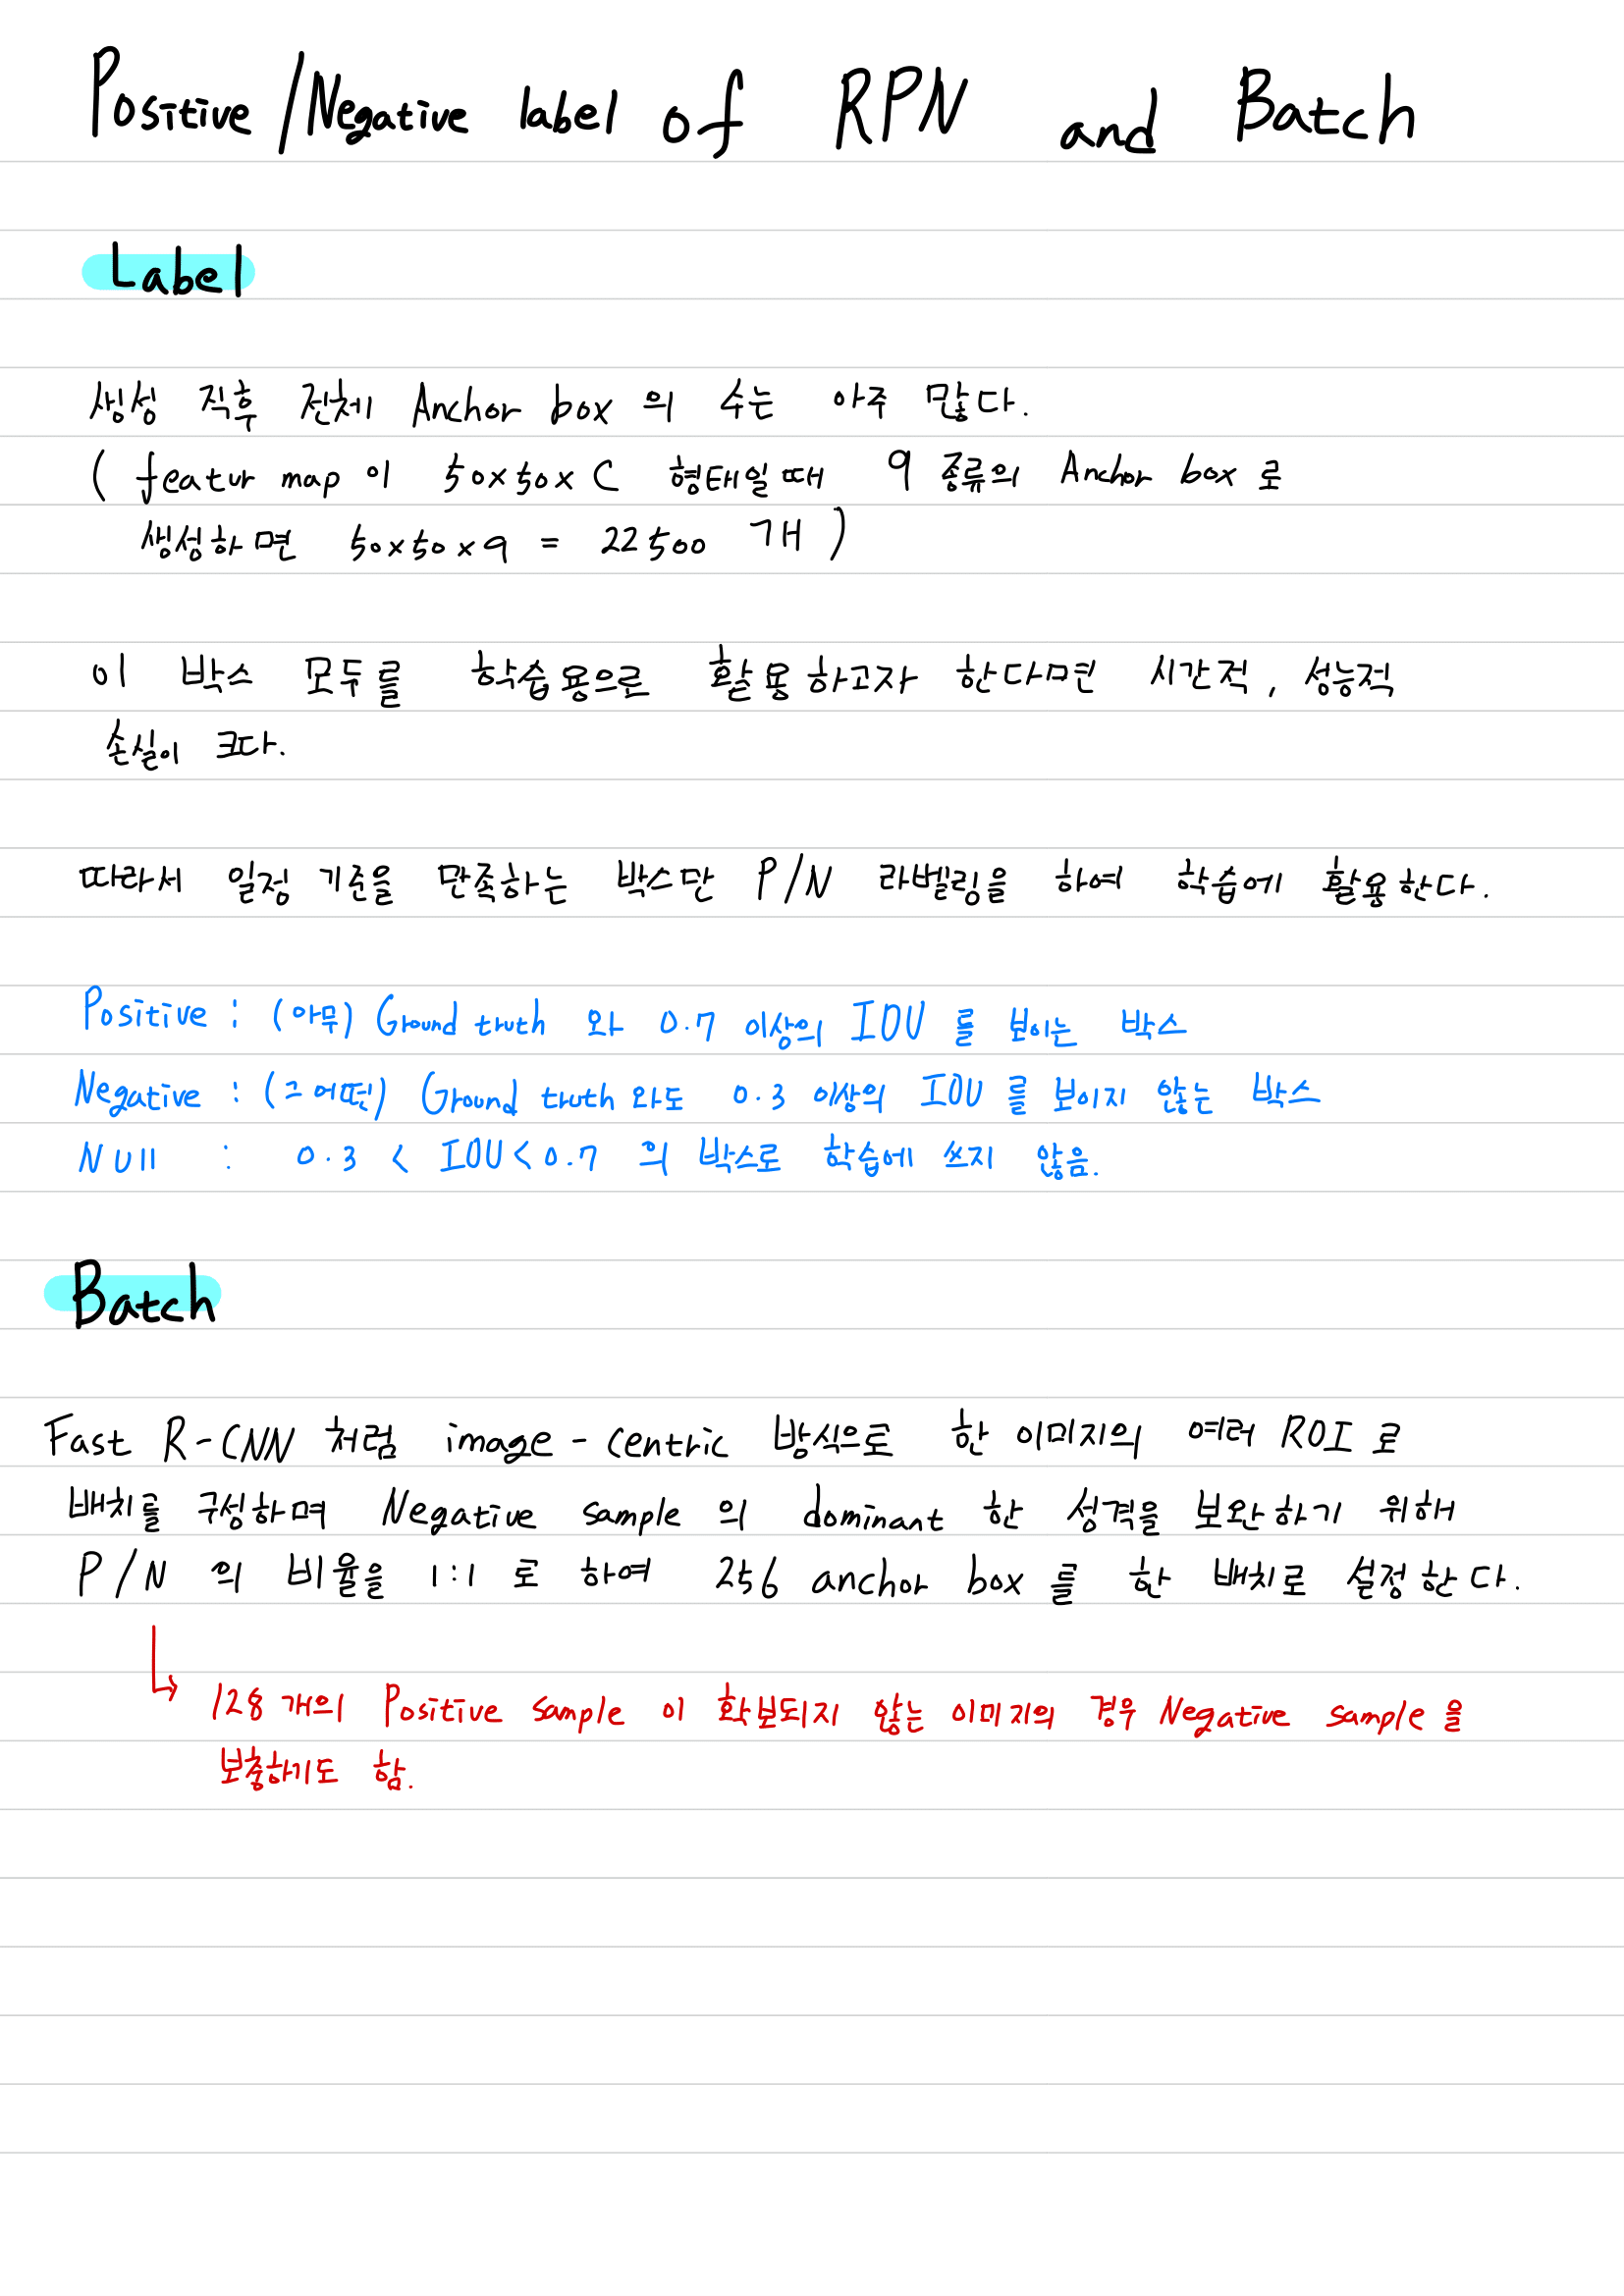 Positive/Negative label of RPN and Batch
Label
생성 직후 전체 Anchor box의 수는 아주 많다.
( featur map 이 50x50xC 형태일때 9 종류의 Anchor box 로
생성하면 50x50x9 = 22500 개 )
이 박스 모두를 학습용으로 활용하고자 한다면 시간적, 성능적
손실이 크다.
따라서 일정 기준을 만족하는 박스만 P/N 라벨링을 하여 학습에 활용한다.
Positive : (아무) Ground truth 와 0.7 이상의 IOU 를 보이는 박스
Negative : (그 어떤) Ground truth 와도 0.3 이상의 IOU 를 보이지 않는 박스
Null : 0.3 < IOU < 0.7 의 박스로 학습에 쓰지 않음.
Batch
Fast R-CNN 처럼 image-centric 방식으로 한 이미지의 여러 ROI 로
배치를 구성하며 Negative sample 의 dominant 한 성격을 보완하기 위해
P/N 의 비율을 1:1 로 하여 256 anchor box 를 한 배치로 설정한다.
128개의 Positive sample 이 확보되지 않는 이미지의 경우 Negative sample 을
보충하기도 함.